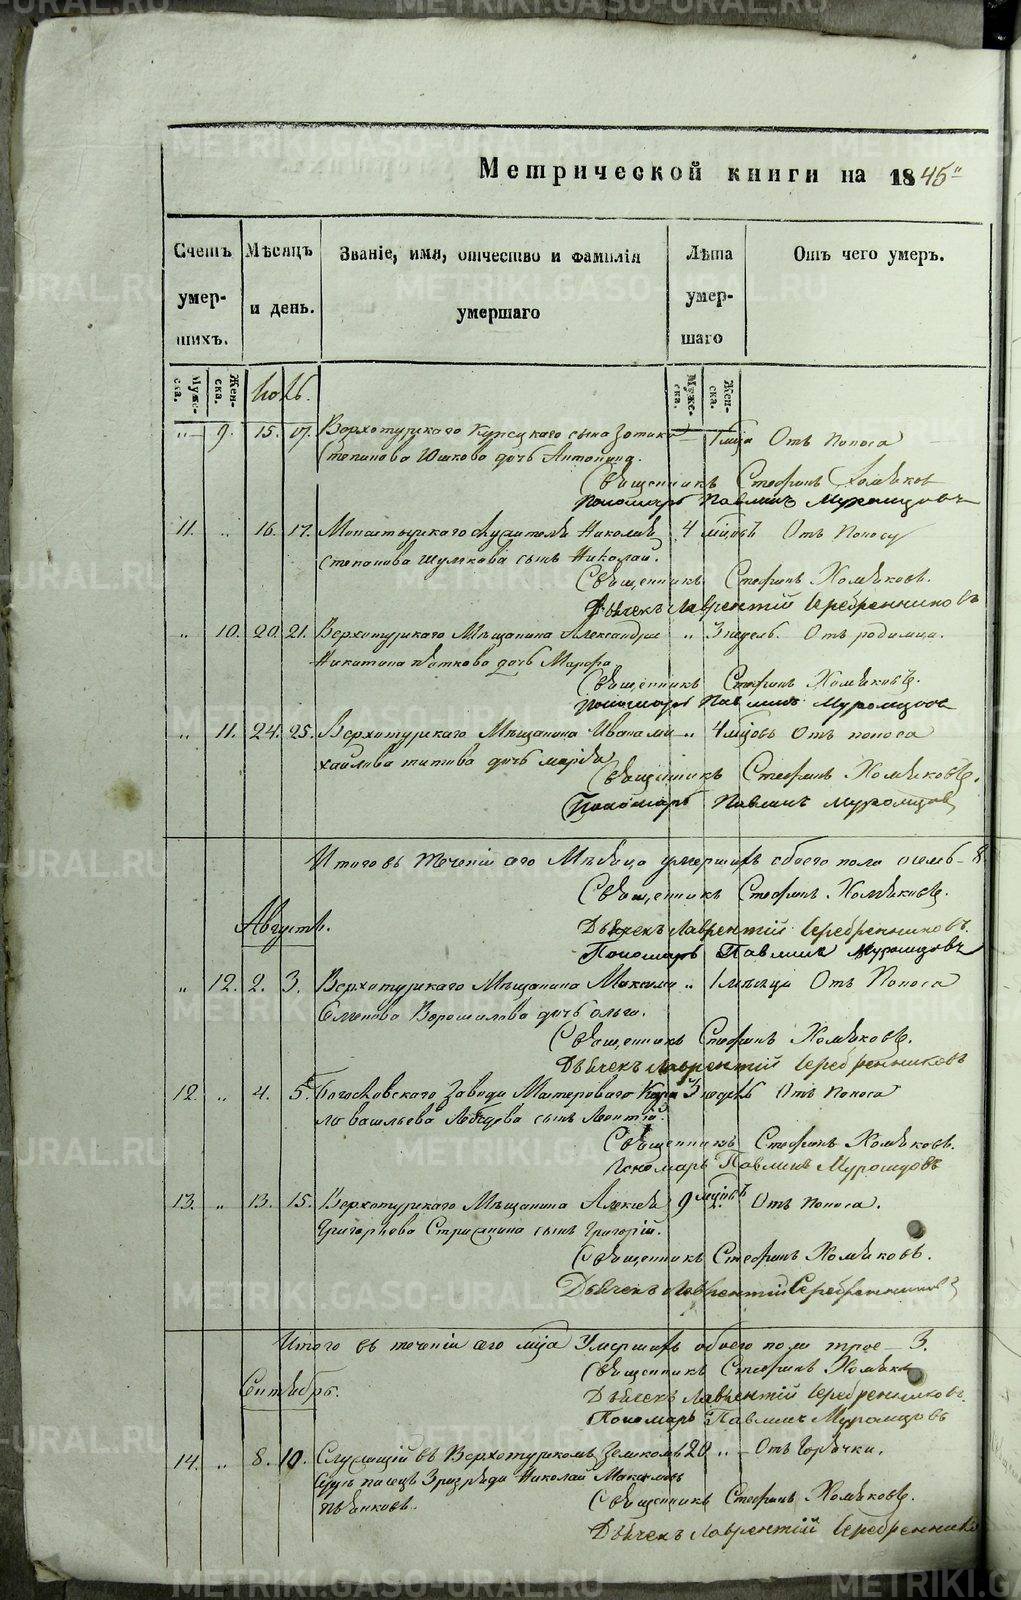 METRIKI.GASO-URAL.RU
Метрической книги на 1845
Счетъ умер-шихъ.
Мѣсяцъ и день.
Званіе, имя, отчество и фамилія умершаго
Лѣта умер-шаго
Отъ чего умеръ.
Муже-ска.
Жен-ска.
Муже-ска.
Жен-ска.
„ 9. 15. 17. Верхотурскаго Купецкаго сына Зотика „ 1 мца Отъ поноса
Степанова дочь Антонина.
Священникъ Стефанъ Хомяков
Пономарь Павлинъ Муромцовъ
11. „ 16. 17. Николая 4 мцовъ Отъ поноса
Степанова сынъ Николай.
Священникъ Стефанъ Хомяковъ.
Дьячекъ Лаврентій Серебренниковъ
„ 10. 20. 21. Верхотурскаго Мѣщанина Александра „ 3 недель. Отъ родимца.
Никитина дочь Марфа
Священникъ Стефанъ Хомяковъ.
Пономарь Павлинъ Муромцов
„ 11. 24. 25. Верхотурскаго Мѣщанина Ивана Ми „ 4 мцовъ Отъ поноса
хайлова Титова дочь Марія
Священникъ Стефанъ Хомяковъ.
Пономарь Павлинъ Муромцов
Итого въ теченіи сего Мѣсяца умершихъ обоего пола осемь – 8.
Священникъ Стефанъ Хомяковъ.
Августъ.
Дьячекъ Лаврентій Серебренниковъ.
Пономарь Павлинъ Муромцовъ
„ 12. 2. 3. Верхотурскаго Мѣщанина Максима „ 1 месяца Отъ Поноса
Семенова Ворошилова дочь Ольга.
Священникъ Стефанъ Хомяковъ.
Дьячекъ Лаврентій Серебренниковъ
12. „ 4. 5. Богословскаго Завода Мастероваго Кири 3 недель Отъ Поноса
ла Васильева сынъ Леонтій.
Священникъ Стефанъ Хомяковъ.
Пономарь Павлинъ Муромцовъ
13. „ 13. 15. Верхотурскаго Мѣщанина Алексѣя 9 мцовъ Отъ поноса.
Григорьева сынъ Григорій.
Священникъ Стефанъ Хомяковъ.
Дьячекъ Лаврентій Серебренников
Итого въ теченіи сего мца Умершихъ обоего пола трое – 3.
Священникъ Стефанъ Хомяков
Сентябрь.
Дьячекъ Лаврентій Серебренниковъ.
Пономарь Павлинъ Муромцовъ
14. „ 8. 10. Служащій въ Верхотурскомъ Земскомъ 20 „ Отъ Горячки.
Суде писецъ 3 разряда Николай Максимовъ
Священникъ Стефанъ Хомяковъ.
Дьячекъ Лаврентій Серебреннико